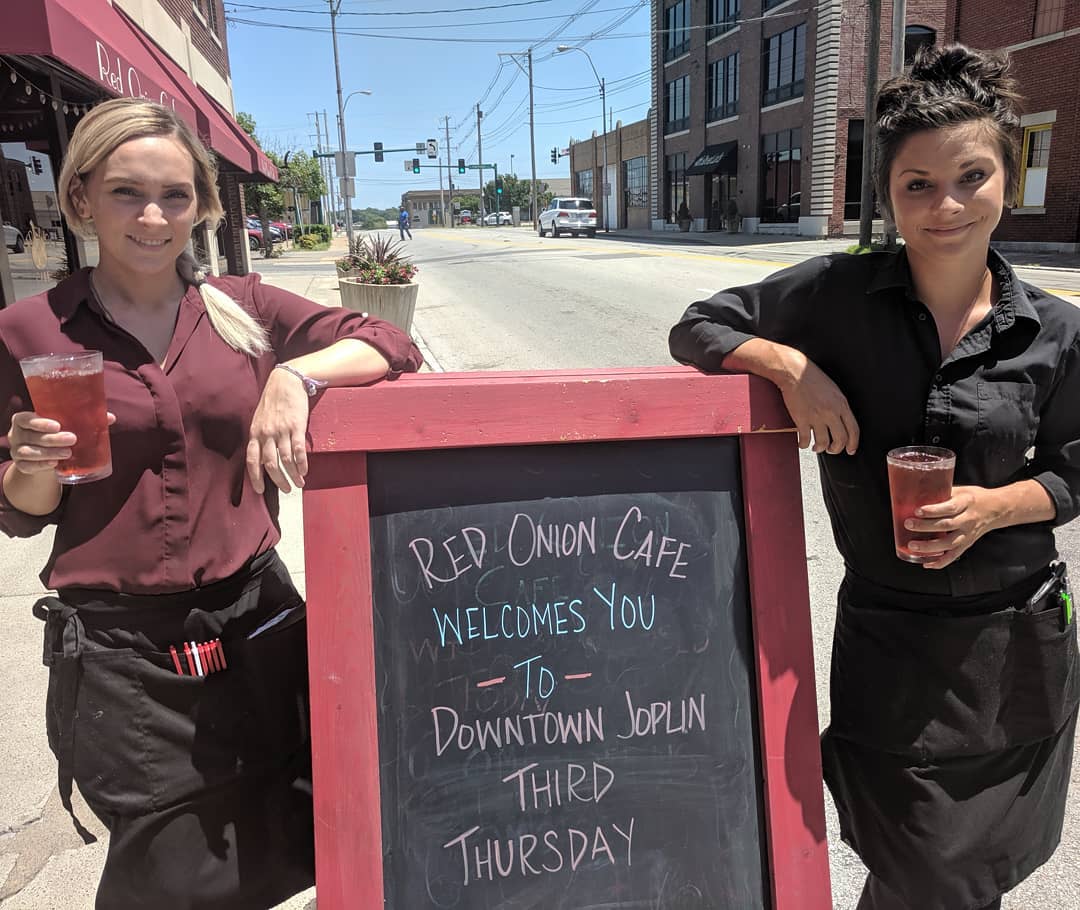 Red Onion Cafe
RED ONION CAFE
WELCOMES YOU
- TO -
DOWNTOWN JOPLIN
THIRD
THURSDAY